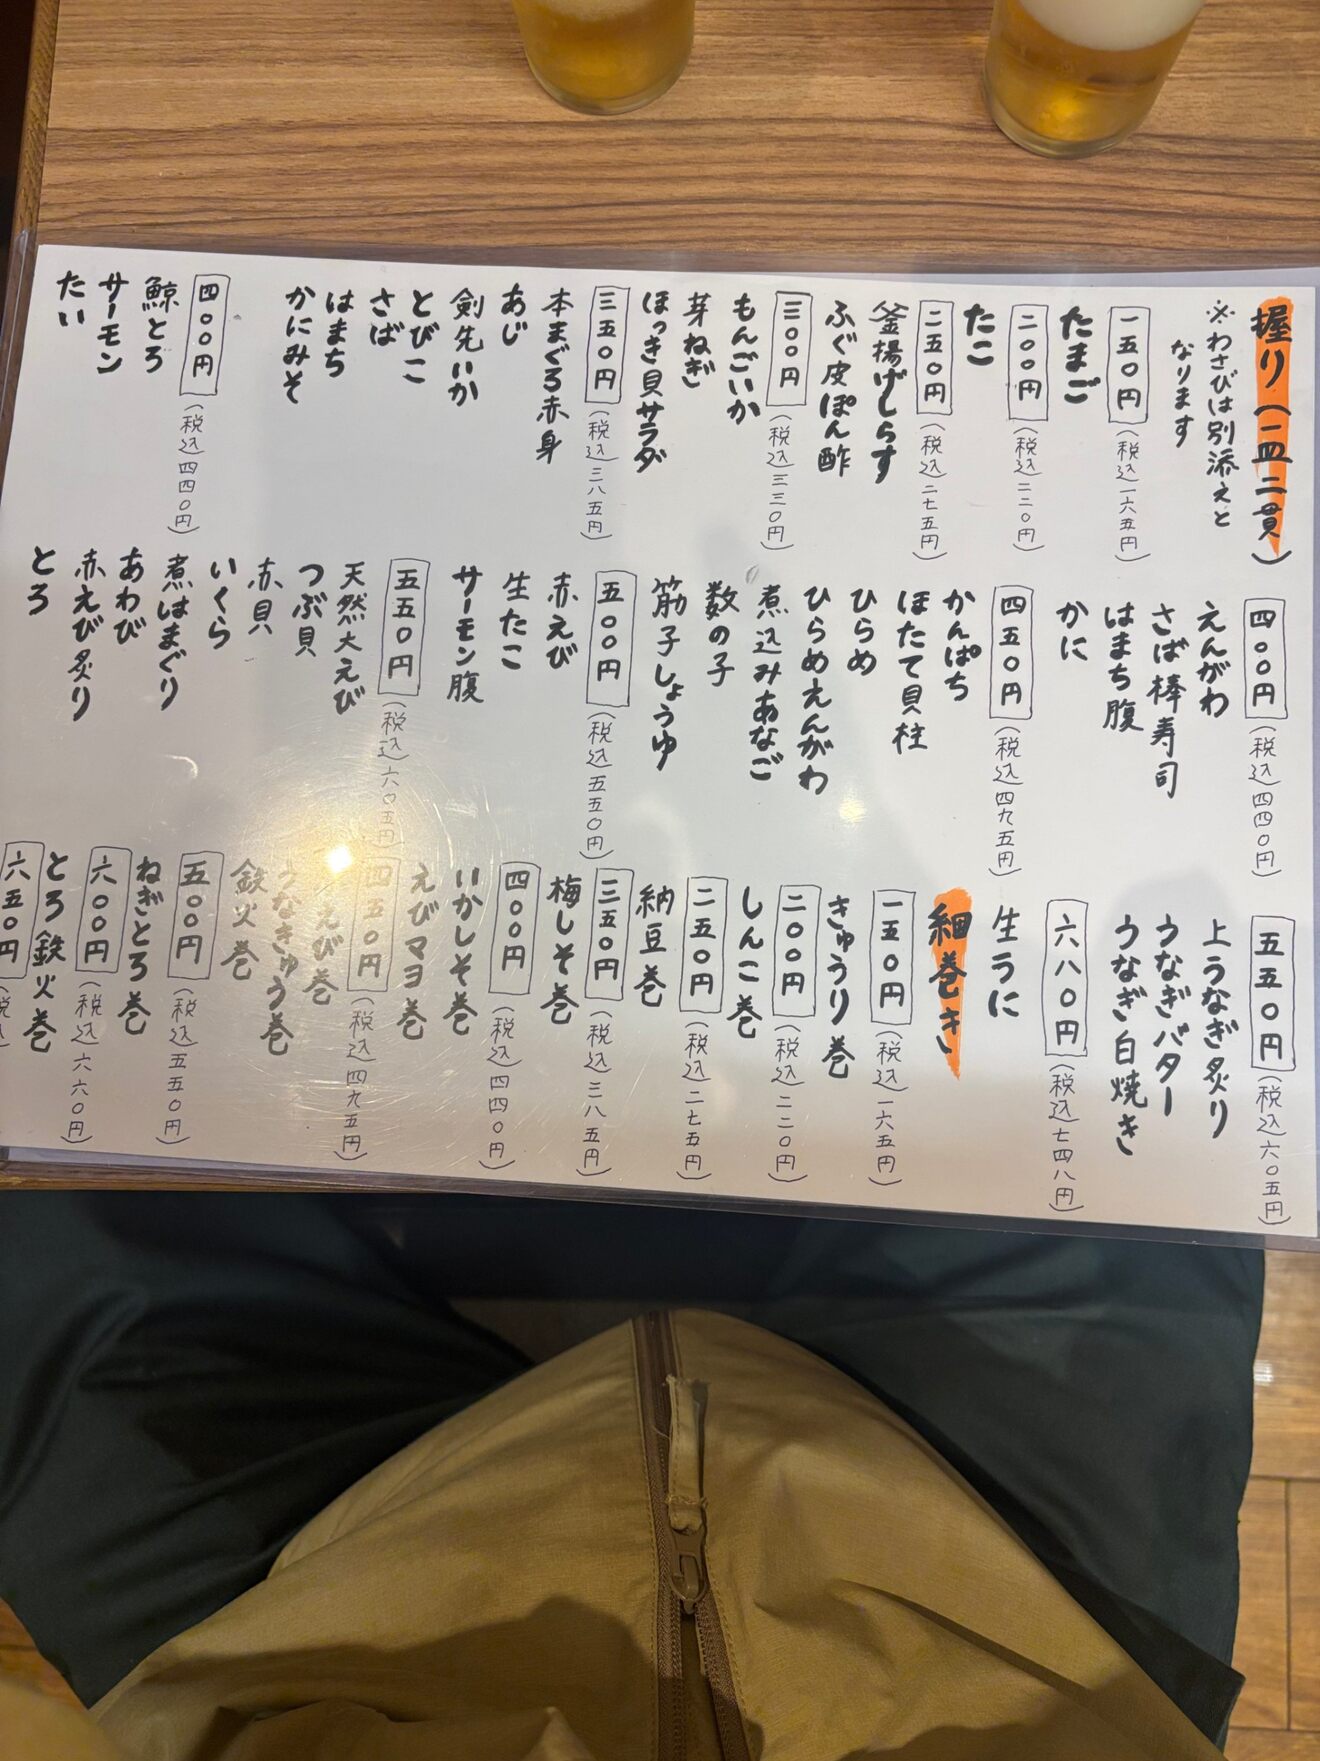 握り(一皿二貫)
※わさびは別添えと
なります
一五〇円(税込一六五円)
たまご
二〇〇円(税込二二〇円)
たこ
二五〇円(税込二七五円)
釜揚げしらす
ふぐ皮ぽん酢
三〇〇円(税込三三〇円)
もんごいか
芽ねぎ
ほっき貝サラダ
三五〇円(税込三八五円)
本まぐろ赤身
あじ
剣先いか
とびこ
さば
はまち
かにみそ
四〇〇円(税込四四〇円)
鯨とろ
サーモン
たい
四〇〇円(税込四四〇円)
えんがわ
さば棒寿司
はまち腹
かに
四五〇円(税込四九五円)
かんぱち
ほたて貝柱
ひらめ
ひらめえんがわ
煮込みあなご
数の子
筋子しょうゆ
五〇〇円(税込五五〇円)
赤えび
生たこ
サーモン腹
五五〇円(税込六〇五円)
天然大えび
つぶ貝
赤貝
いくら
煮はまぐり
あわび
赤えび炙り
とろ
五五〇円(税込六〇五円)
上うなぎ炙り
うなぎバター
うなぎ白焼き
六八〇円(税込七四八円)
生うに
細巻き
一五〇円(税込一六五円)
きゅうり巻
二〇〇円(税込二二〇円)
しんこ巻
二五〇円(税込二七五円)
納豆巻
三五〇円(税込三八五円)
梅しそ巻
四〇〇円(税込四四〇円)
いかしそ巻
えびマヨ巻
四五〇円(税込四九五円)
えび巻
うなきゅう巻
鉄火巻
五〇〇円(税込五五〇円)
ねぎとろ巻
六〇〇円(税込六六〇円)
とろ鉄火巻
六五〇円(税